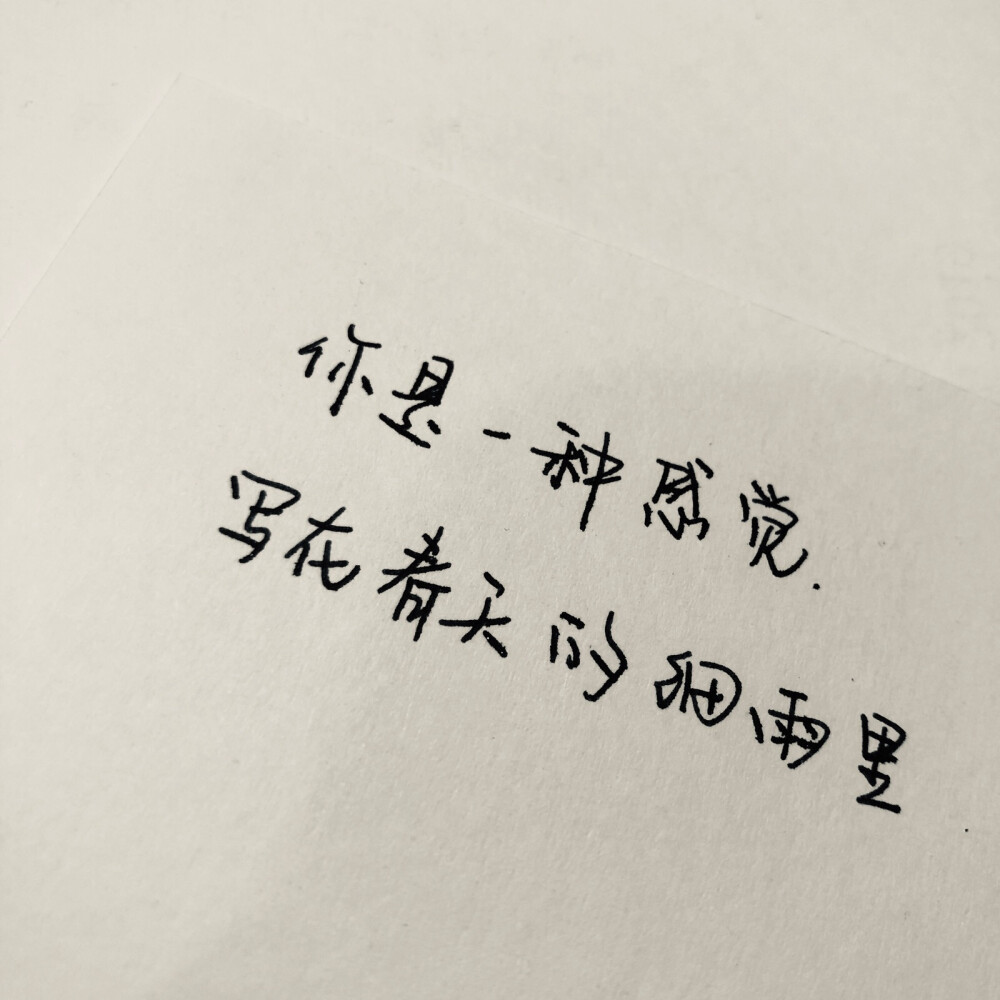 你是一种感觉.
写在春天的细雨里